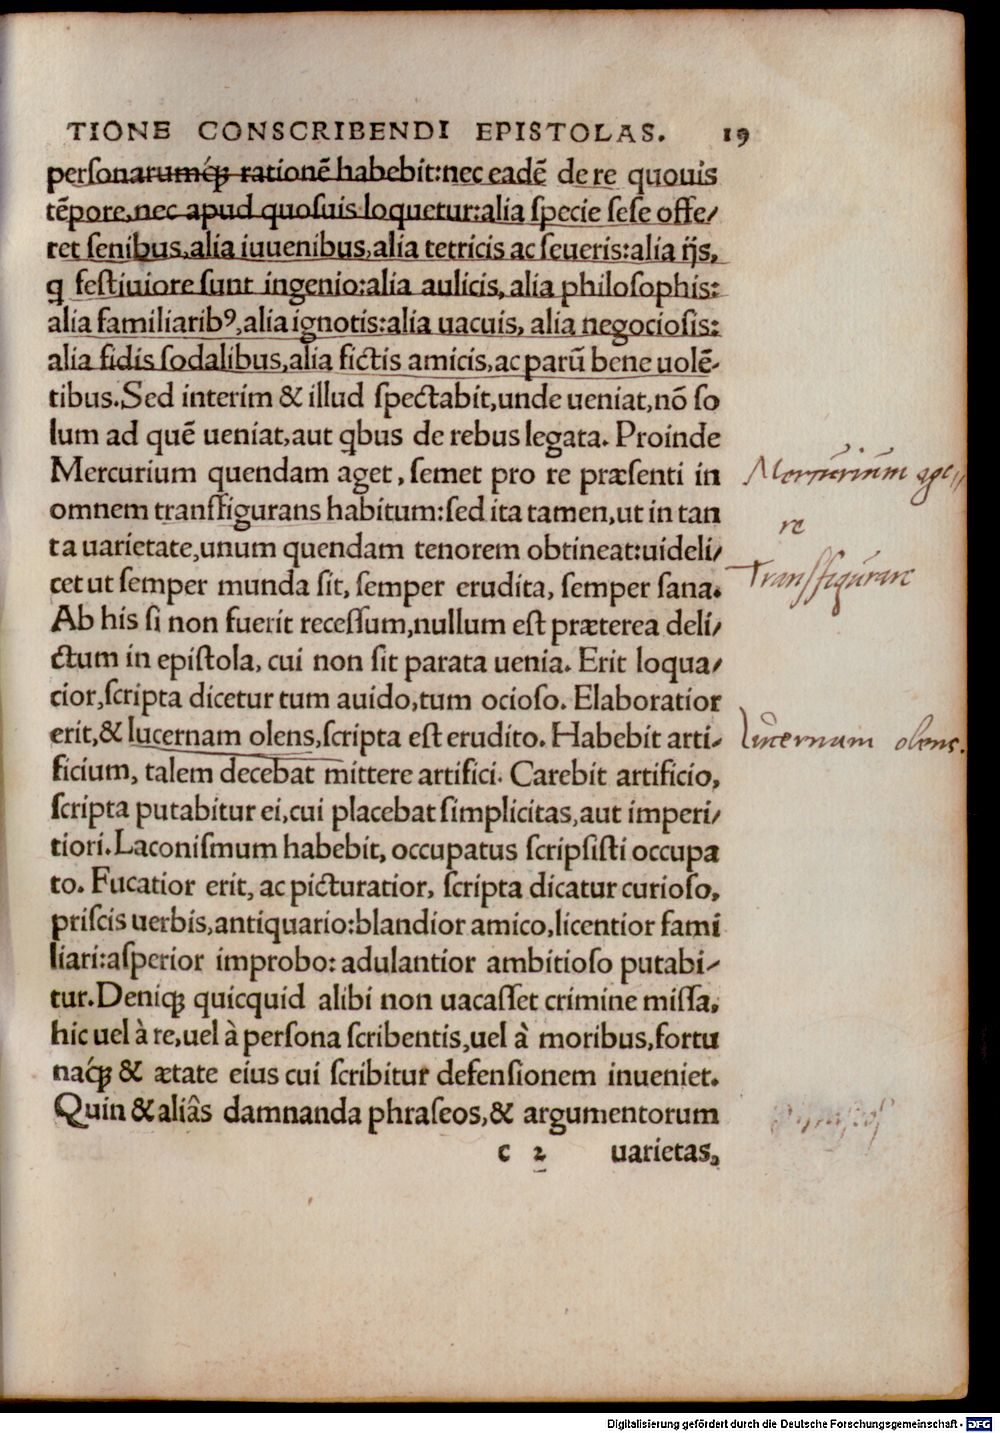 TIONE CONSCRIBENDI EPISTOLAS. 19
perſonarumq́ꝫ rationē habebit:nec eadē de re quouis
tēpore,nec apud quoſuis loquetur:alia ſpecie ſeſe offe/
ret ſenibus,alia iuuenibus,alia tetricis ac ſeueris:alia ijs,
ꝗ feſtiuiore ſunt ingenio:alia aulicis, alia philoſophis:
alia familiaribꝰ,alia ignotis:alia uacuis, alia negocioſis:
alia fidis ſodalibus,alia fictis amicis,ac parū bene uolē-
tibus.Sed interim & illud ſpectabit,unde ueniat,nō ſo
lum ad quē ueniat,aut ꝗbus de rebus legata. Proinde
Mercurium quendam aget, ſemet pro re præſenti in
omnem tranſfigurans habitum:ſed ita tamen,ut in tan
ta uarietate,unum quendam tenorem obtineat:uideli/
cet ut ſemper munda ſit, ſemper erudita, ſemper ſana.
Ab his ſi non fuerit receſſum,nullum eſt præterea deli/
ctum in epiſtola, cui non ſit parata uenia. Erit loqua/
cior,ſcripta dicetur tum auido,tum ocioſo. Elaboratior
erit,& lucernam olens,ſcripta eſt erudito. Habebit arti-
ficium, talem decebat mittere artifici. Carebit artificio,
ſcripta putabitur ei,cui placebat ſimplicitas,aut imperi/
tiori.Laconiſmum habebit, occupatus ſcripſiſti occupa
to. Fucatior erit, ac picturatior, ſcripta dicatur curioſo,
priſcis uerbis,antiquario:blandior amico,licentior fami
liari:aſperior improbo: adulantior ambitioſo putabi-
tur.Deniqꝫ quicquid alibi non uacaſſet crimine miſſa,
hic uel à re,uel à perſona ſcribentis,uel à moribus,fortu
naq́ꝫ & ætate eius cui ſcribitur defenſionem inueniet.
Quin & aliâs damnanda phraſeos,& argumentorum
c 2 uarietas,
Mercurium age//
re
Tranſſigurare
Lucernam olens.
Digitalisierung gefördert durch die Deutsche Forschungsgemeinschaft - DFG